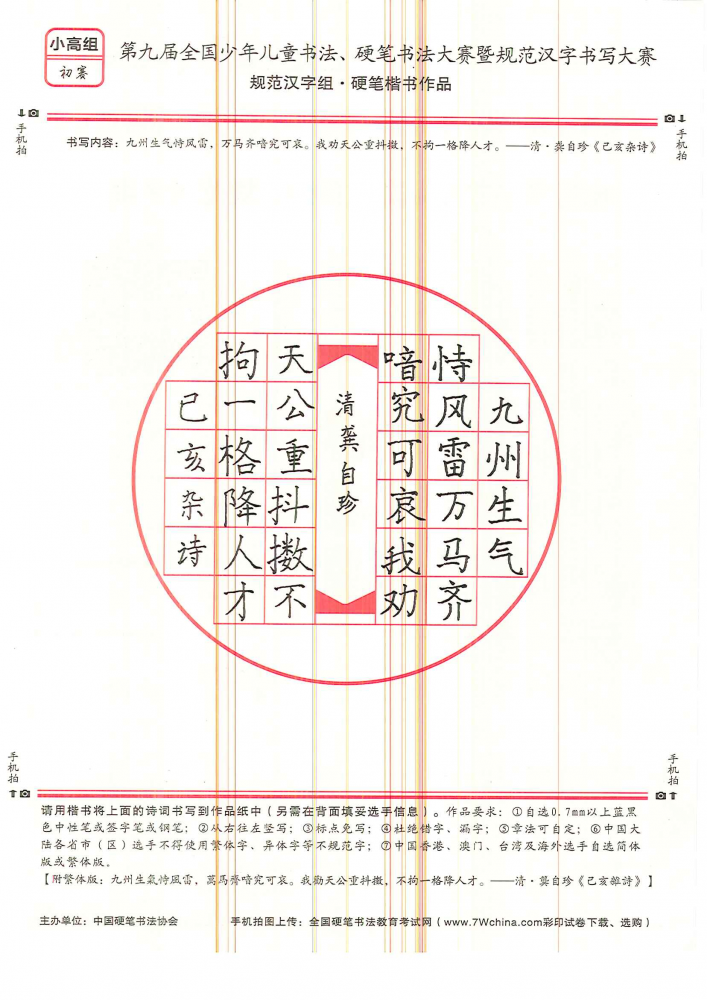 小高组
初赛
第九届全国少年儿童书法、硬笔书法大赛暨规范汉字书写大赛
规范汉字组·硬笔楷书作品
手机拍
手机拍
书写内容：九州生气恃风雷，万马齐喑究可哀。我劝天公重抖擞，不拘一格降人才。——清·龚自珍《己亥杂诗》
九州生气
恃风雷万马齐
喑究可哀我劝
清龚自珍
天公重抖擞不
拘一格降人才
己亥杂诗
手机拍
手机拍
请用楷书将上面的诗词书写到作品纸中（另需在背面填妥选手信息）。作品要求：①自选0.7mm以上蓝黑
色中性笔或签字笔或钢笔；②从右往左竖写；③标点免写；④杜绝错字、漏字；⑤章法可自定；⑥中国大
陆各省市（区）选手不得使用繁体字、异体字等不规范字；⑦中国香港、澳门、台湾及海外选手自选简体
版或繁体版。
【附繁体版：九州生氣恃風雷，萬馬齊喑究可哀。我勸天公重抖擻，不拘一格降人才。——清·龔自珍《己亥雜詩》】
主办单位：中国硬笔书法协会
手机拍图上传：全国硬笔书法教育考试网（www.7Wchina.com彩印试卷下载、选购）